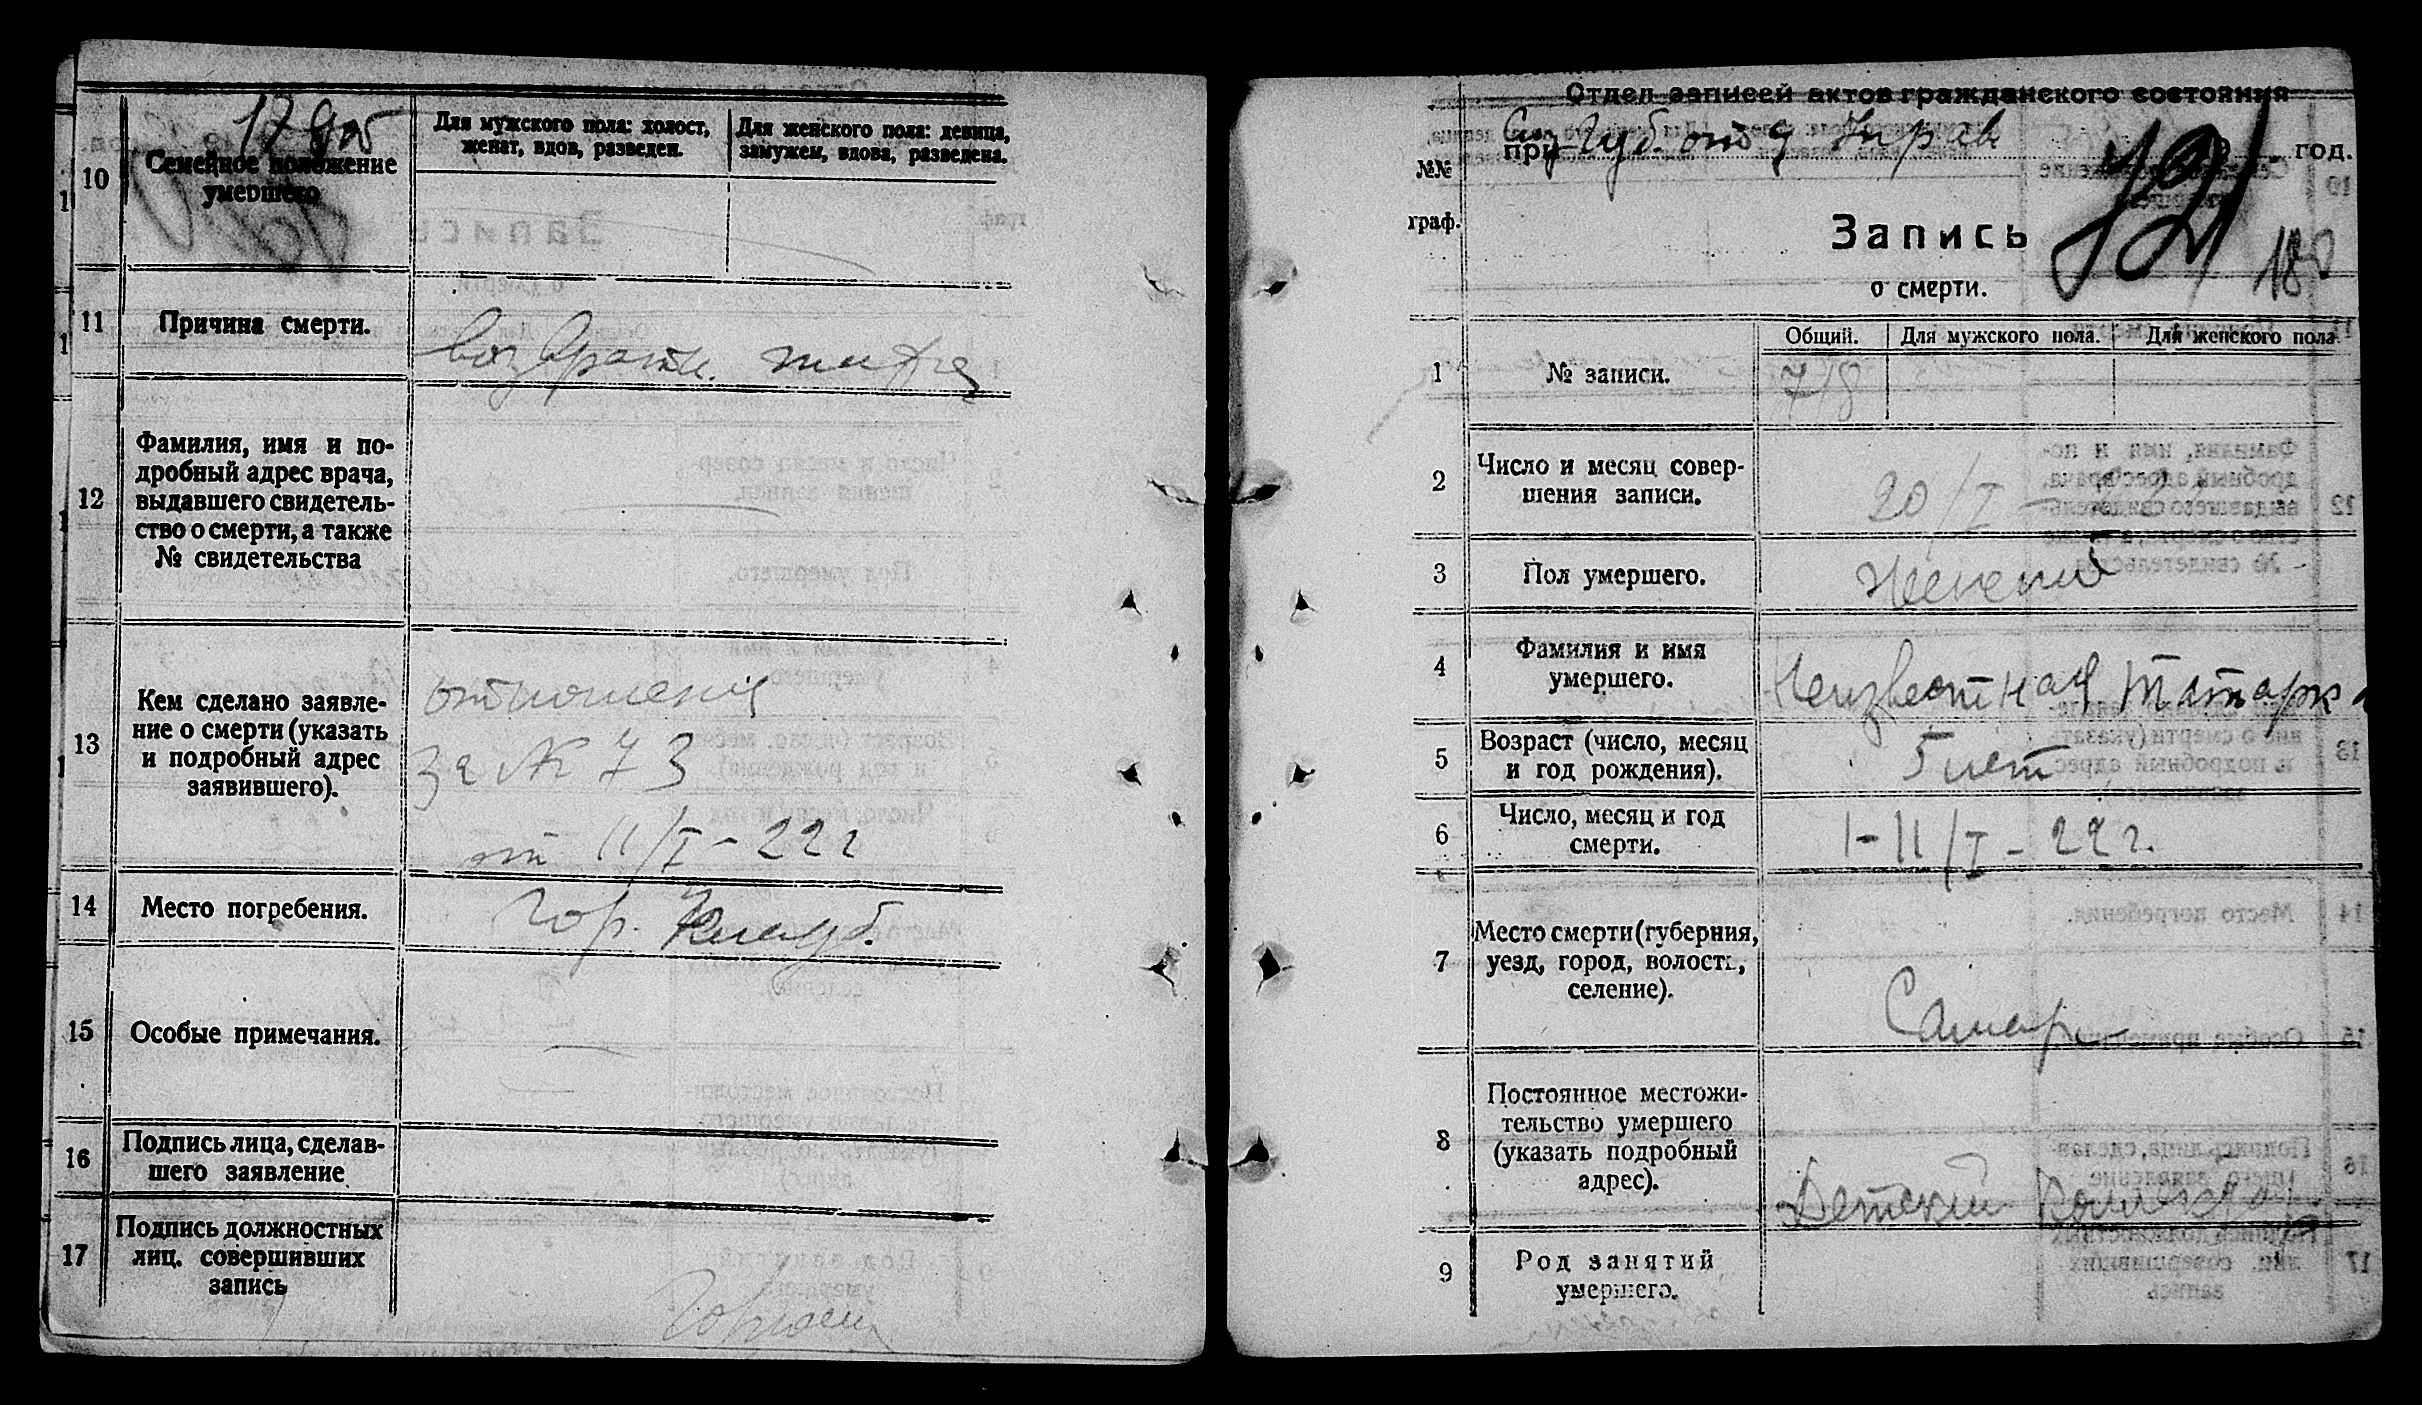 17 9об
10
Семейное положение
умершего
Для мужского пола: холост,
женат, вдов, разведен.
Для женского пола: девица,
замужем, вдова, разведена.
11
Причина смерти.
возвратн. тифа
12
Фамилия, имя и по-
дробный адрес врача,
выдавшего свидетель-
ство о смерти, а также
№ свидетельства
13
Кем сделано заявле-
ние о смерти (указать
и подробный адрес
заявившего).
отношения
за № 73
от 11/I - 22 г
14
Место погребения.
Гор. Кладб.
15
Особые примечания.
16
Подпись лица, сделав-
шего заявление
17
Подпись должностных
лиц. совершивших
запись
Отдел записей актов гражданского состояния
при Губ. отд Управ
год.
№№
граф.
Запись
о смерти.
1
№ записи.
Общий.
Для мужского пола.
Для женского пола
718
2
Число и месяц совер-
шения записи.
20/I
3
Пол умершего.
Женский
4
Фамилия и имя
умершего.
Неизвестная татарка
5
Возраст (число, месяц
и год рождения).
5 лет
6
Число, месяц и год
смерти.
1-11/I - 22 г.
7
Место смерти (губерния,
уезд, город, волость,
селение).
Самара
8
Постоянное местожи-
тельство умершего
(указать подробный
адрес).
Детский
9
Род занятий
умершего.